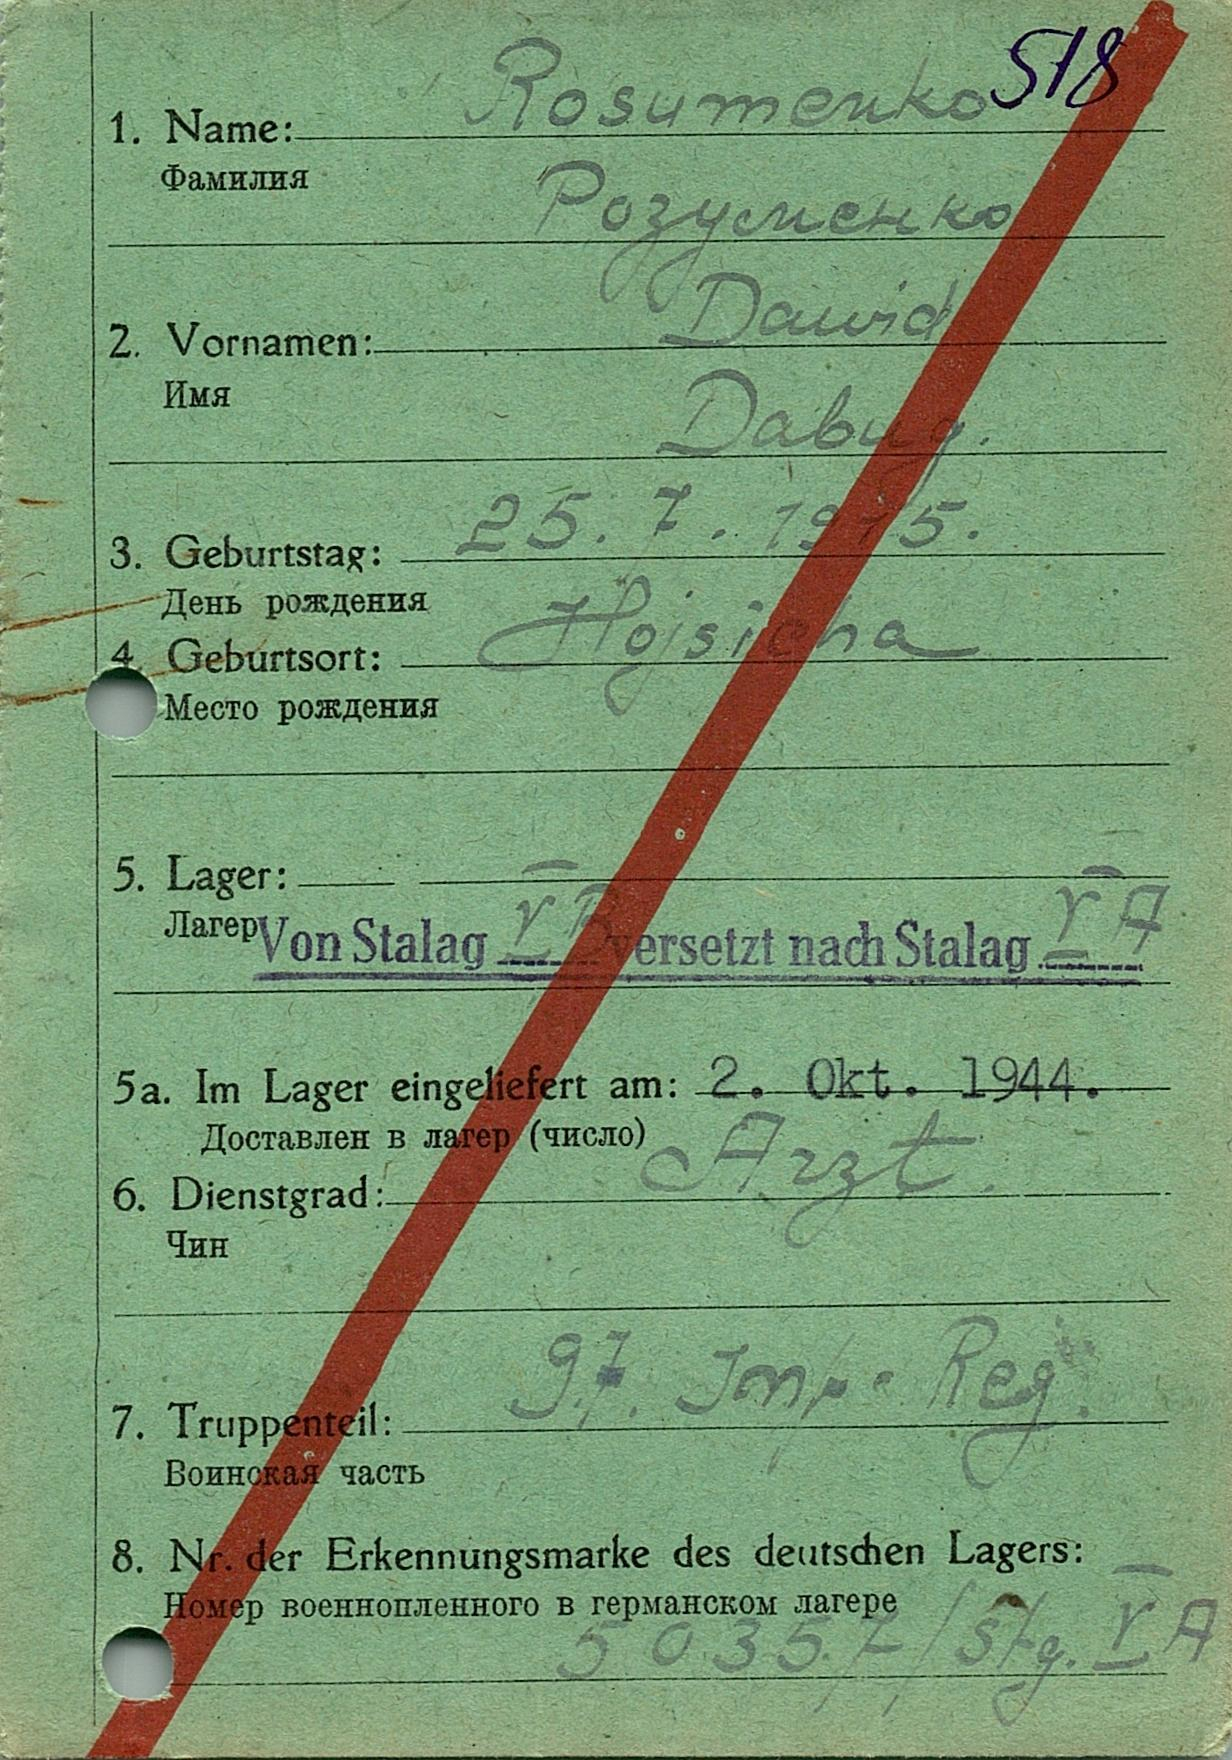 518
1. Name: Rosumenko
Фамилия
Розуменко
2. Vornamen: Dawid
Имя
Давид.
3. Geburtstag: 25. 7. 1915.
День рождения
4. Geburtsort: Hojsicha
Место рождения
5. Lager:
Лагер Von Stalag V B versetzt nach Stalag V A
5a. Im Lager eingeliefert am: 2. Okt. 1944.
Доставлен в лагер (число)
6. Dienstgrad: Arzt.
Чин
7. Truppenteil: 97. Inf. Reg.
Воинская часть
8. Nr. der Erkennungsmarke des deutschen Lagers:
Номер военнопленного в германском лагере
50357/Stg. V A